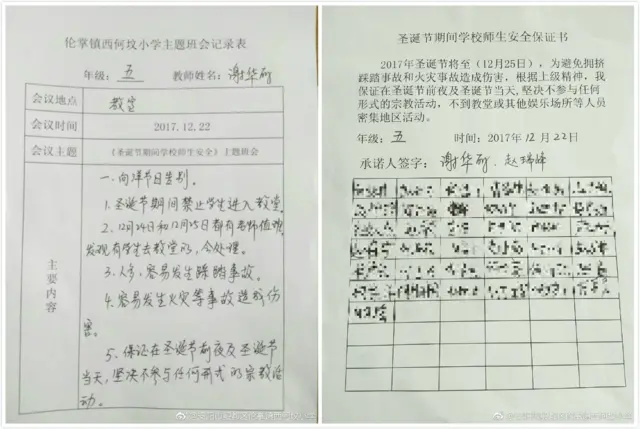 伦掌镇西何坟小学主题班会记录表
年级：五 教师姓名：谢华矿
会议地点 教室
会议时间 2017.12.22
会议主题 《圣诞节期间学校师生安全》主题班会
主要内容
一.向洋节日告别。
1.圣诞节期间禁止学生进入教堂
2、12月24日和12月25日都有老师值班
发现有学生去教堂的，会处理。
3、人多，容易发生踩踏事故。
4.容易发生火灾等事故造成伤
害。
5.保证在圣诞节前夜及圣诞节
当天，坚决不参与任何形式的宗教活
动。
圣诞节期间学校师生安全保证书
2017年圣诞节将至（12月25日），为避免拥挤
踩踏事故和火灾事故造成伤害，根据上级精神，我
保证在圣诞节前夜及圣诞节当天，坚决不参与任何
形式的宗教活动，不到教堂或其他娱乐场所等人员
密集地区活动。
年级：五 时间：2017年12月22日
承诺人签字：谢华矿、赵瑞峰